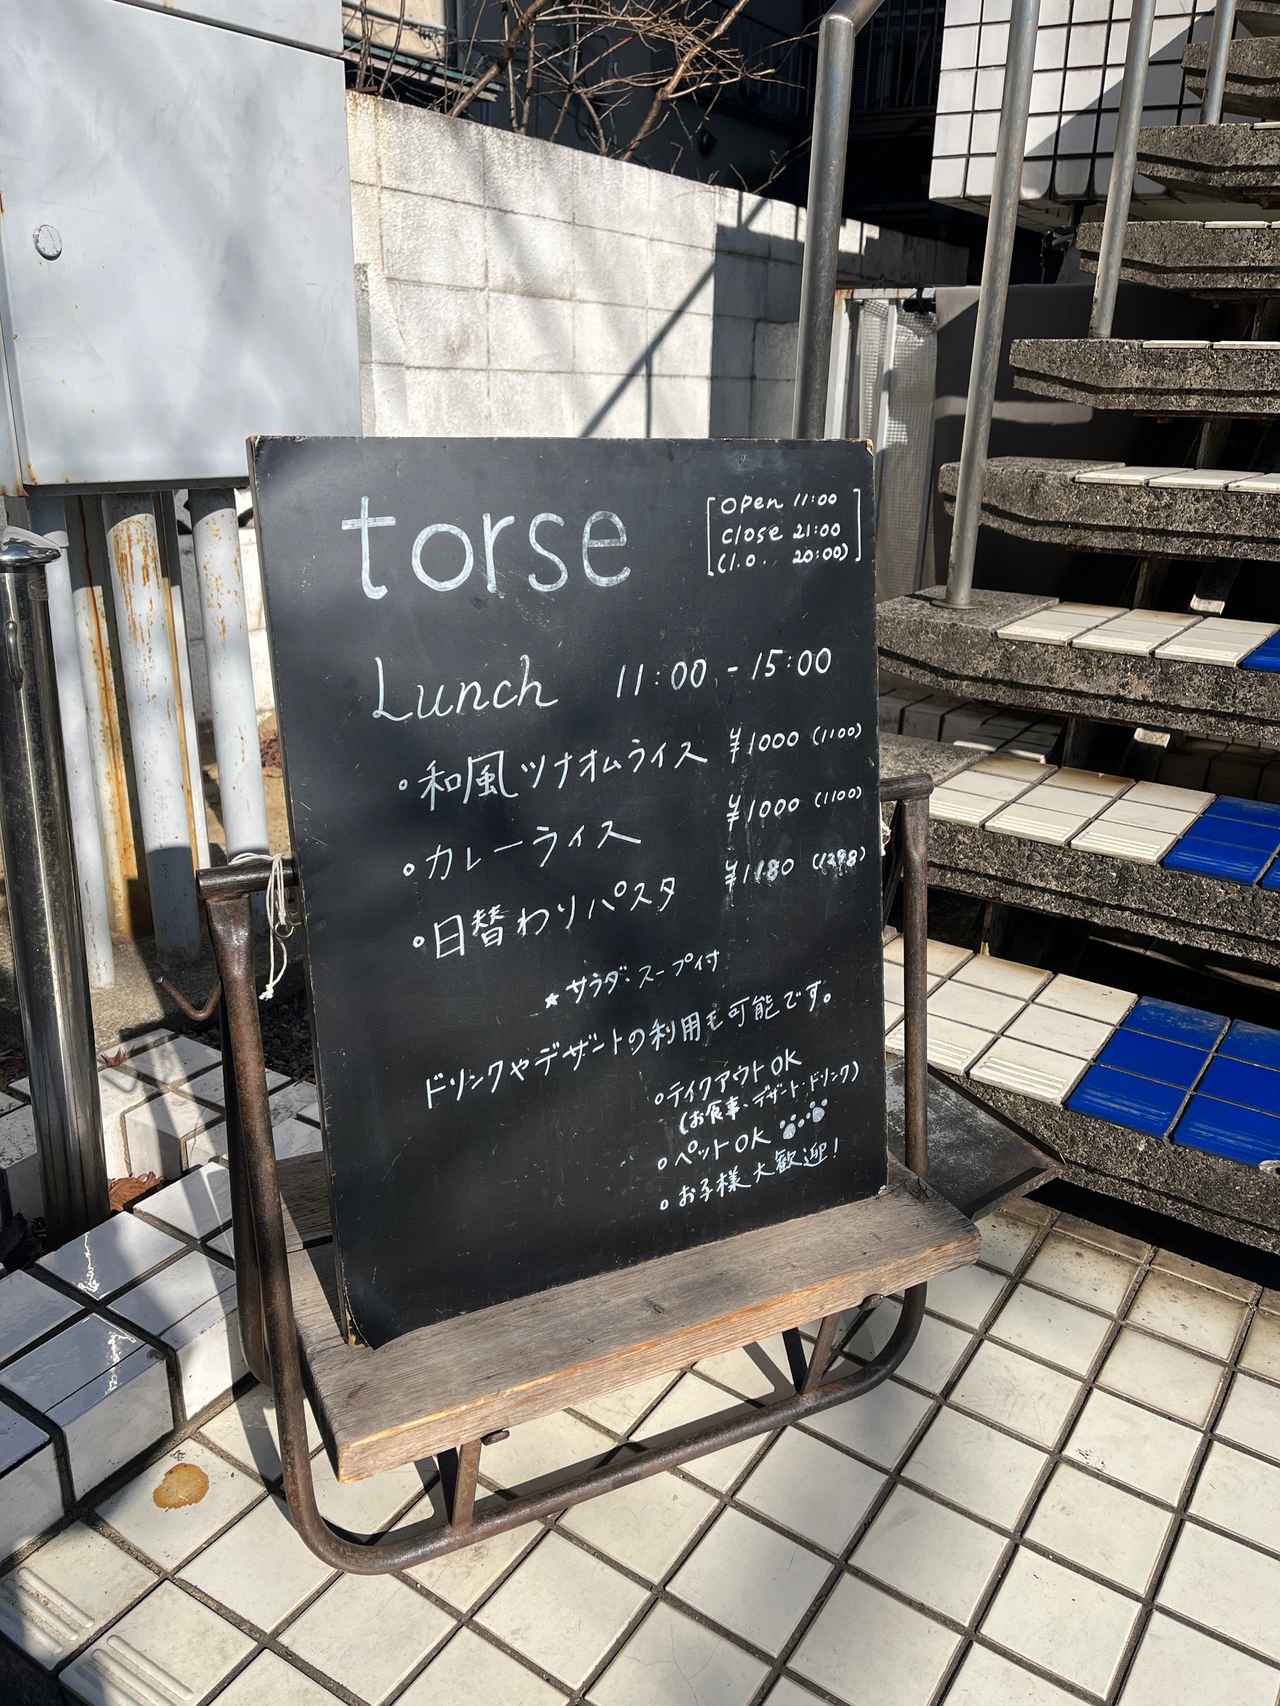 torse
[Open 11:00
Close 21:00
(l.o. 20:00)]
Lunch 11:00 - 15:00
・和風ツナオムライス ¥1000 (1100)
・カレーライス ¥1000 (1100)
・日替わりパスタ ¥1180 (1298)
★サラダ・スープ付
ドリンクやデザートの利用も可能です。
・テイクアウトOK
(お食事・デザート・ドリンク)
・ペットOK
・お子様大歓迎!